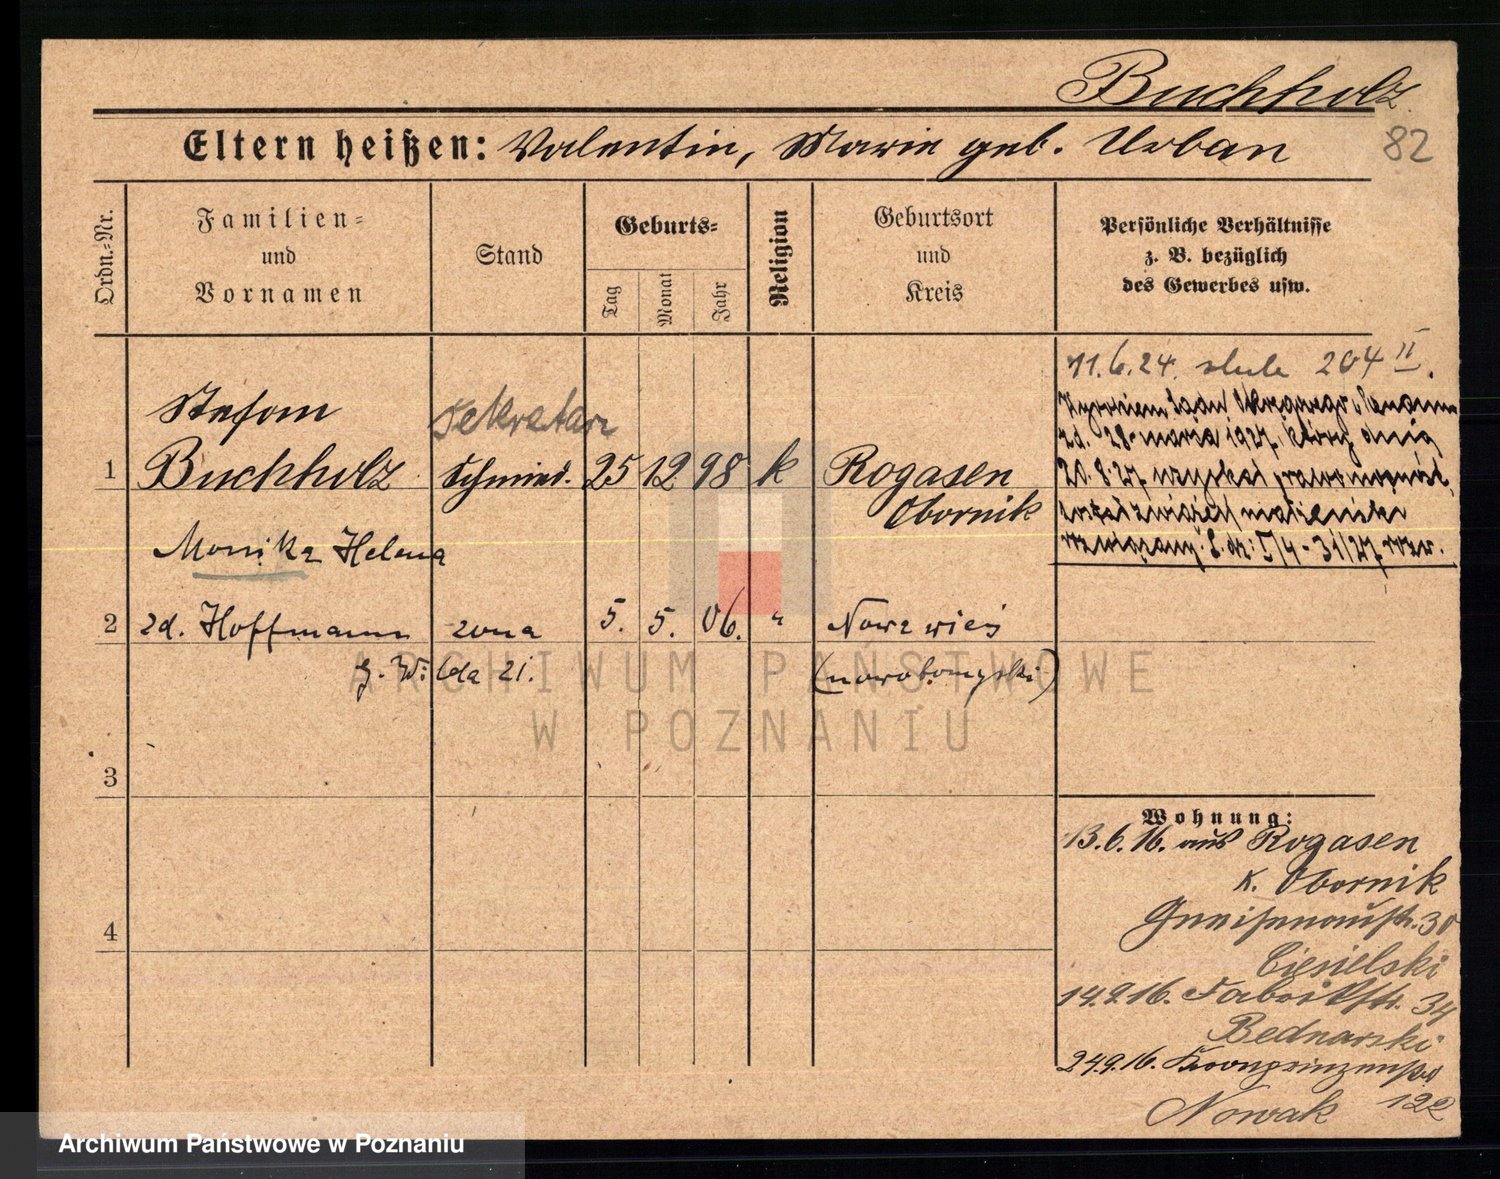 Buchholz
82
Eltern heißen: Valentin, Marie geb. Urban
Ordn.-Nr.
Familien-
und
Vornamen
Stand
Geburts-
Tag
Monat
Jahr
Religion
Geburtsort
und
Kreis
Persönliche Verhältnisse
z. B. bezüglich
des Gewerbes usw.
11.6.24. slub 204 II.
Stefan
Sekretarz
1 Buchholz Schmied. 25 12 98 k Rogasen
Obornik
Wyrokiem Sądu Okręgowego
zd. 28 marca 1927, który dnia
20.8.27 uzyskał prawomocność,
został związek małżeński
rozwiązany.
Monika Helena
2 zd. Hoffmann żona 5. 5. 06. " Nowawieś
g. Wilda 21. (nowotomyski)
3
4
Wohnung:
13.6.16. aus Rogasen
K. Obornik
Gneisenaustr. 30
Ciesielski
14.9.16. Fabrikstr. 34
Bednarski
24.9.16. Kronprinzenstr.
122
Nowak
ARCHIWUM PAŃSTWOWE
W POZNANIU
Archiwum Państwowe w Poznaniu